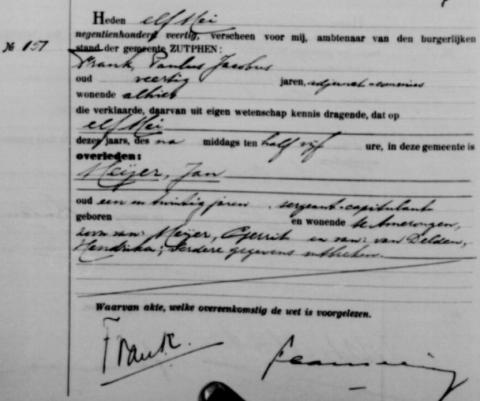 Heden elf Mei
negentienhonderd veertig, verscheen voor mij, ambtenaar van den burgerlijken
№ 157 stand der gemeente ZUTPHEN:
Frank, Paulus Jacobus
oud veertig jaren, adjunct-commies
wonende alhier
die verklaarde, daarvan uit eigen wetenschap kennis dragende, dat op
elf Mei
dezes jaars, des na middags ten half vijf ure, in deze gemeente is
overleden:
Meijer, Jan
oud een en twintig jaren, sergeant-capitulant
geboren en wonende te Amerongen,
zoon van: Meijer, Gerrit en van: van Delden,
Hendrika; verdere gegevens ontbreken.
Waarvan akte, welke overeenkomstig de wet is voorgelezen.
Frank.